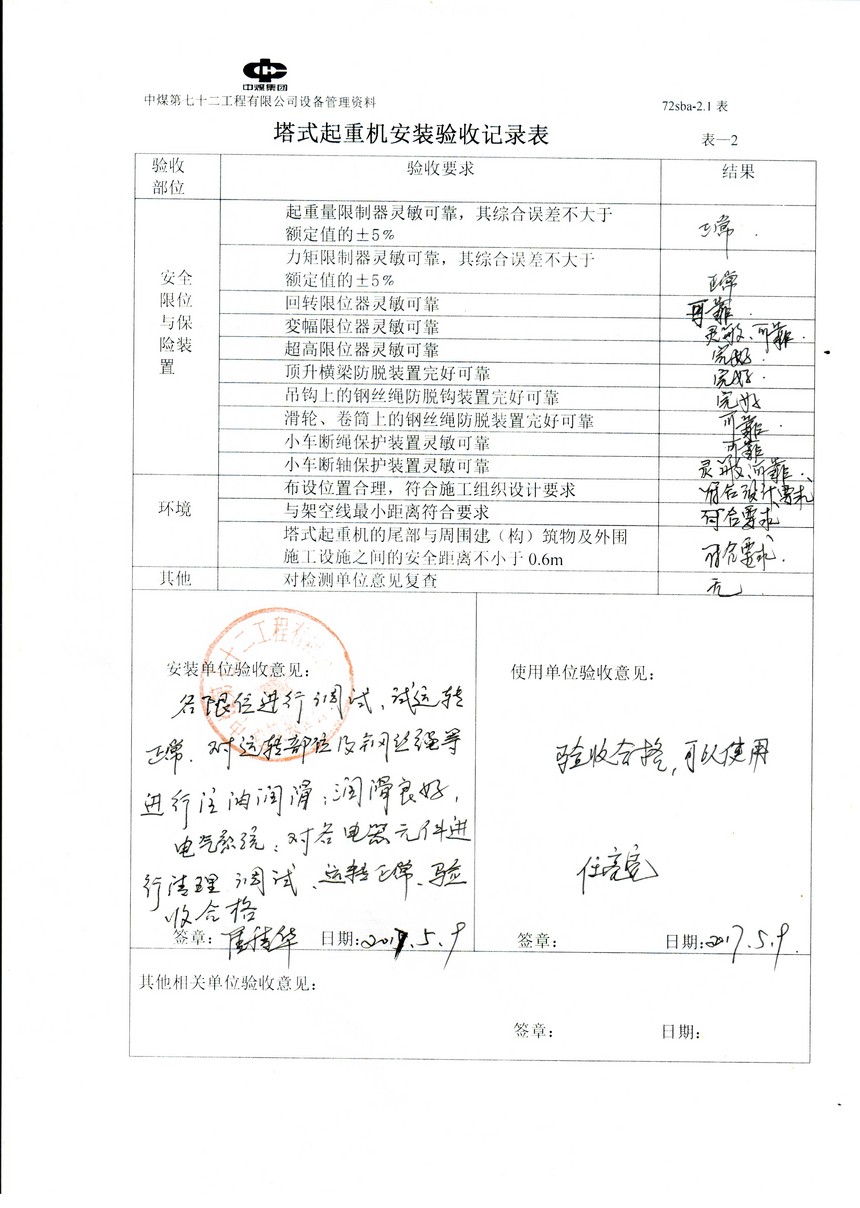 中煤集团
中煤第七十二工程有限公司设备管理资料
72sba-2.1 表
塔式起重机安装验收记录表
表—2
验收部位 验收要求 结果
起重量限制器灵敏可靠，其综合误差不大于
额定值的±5%
正常.
力矩限制器灵敏可靠，其综合误差不大于
额定值的±5%
正常
安全
限位
与保
险装
置
回转限位器灵敏可靠 可靠.
变幅限位器灵敏可靠 灵敏、可靠.
超高限位器灵敏可靠 完好.
顶升横梁防脱装置完好可靠 完好.
吊钩上的钢丝绳防脱钩装置完好可靠 完好
滑轮、卷筒上的钢丝绳防脱装置完好可靠 可靠.
小车断绳保护装置灵敏可靠 可靠
小车断轴保护装置灵敏可靠 灵敏、可靠.
环境
布设位置合理，符合施工组织设计要求 符合设计要求
与架空线最小距离符合要求 符合要求
塔式起重机的尾部与周围建（构）筑物及外围
施工设施之间的安全距离不小于 0.6m
符合要求.
其他 对检测单位意见复查 无
安装单位验收意见：
各限位进行调试、试运转
正常. 对运转部位及钢丝绳等
进行注油润滑；润滑良好，
电气系统：对各电器元件进
行清理调试、运转正常、验
收合格
签章： 日期：2017.5.9
使用单位验收意见：
验收合格，可以使用
任亮亮
签章： 日期：2017.5.9.
其他相关单位验收意见：
签章： 日期：